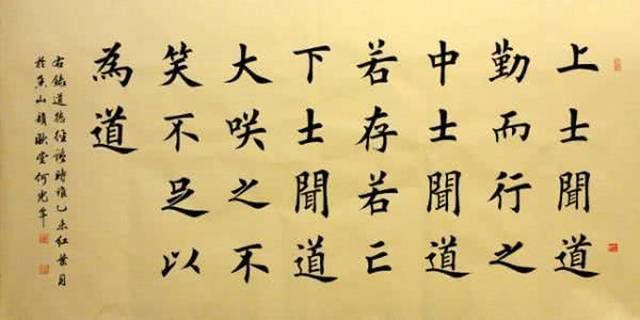 上士聞道
勤而行之
中士聞道
若存若亡
下士聞道
大咲之不
笑不足以
為道
右錄道德經語時維乙未紅葉月
於魚山頴歐堂何光年